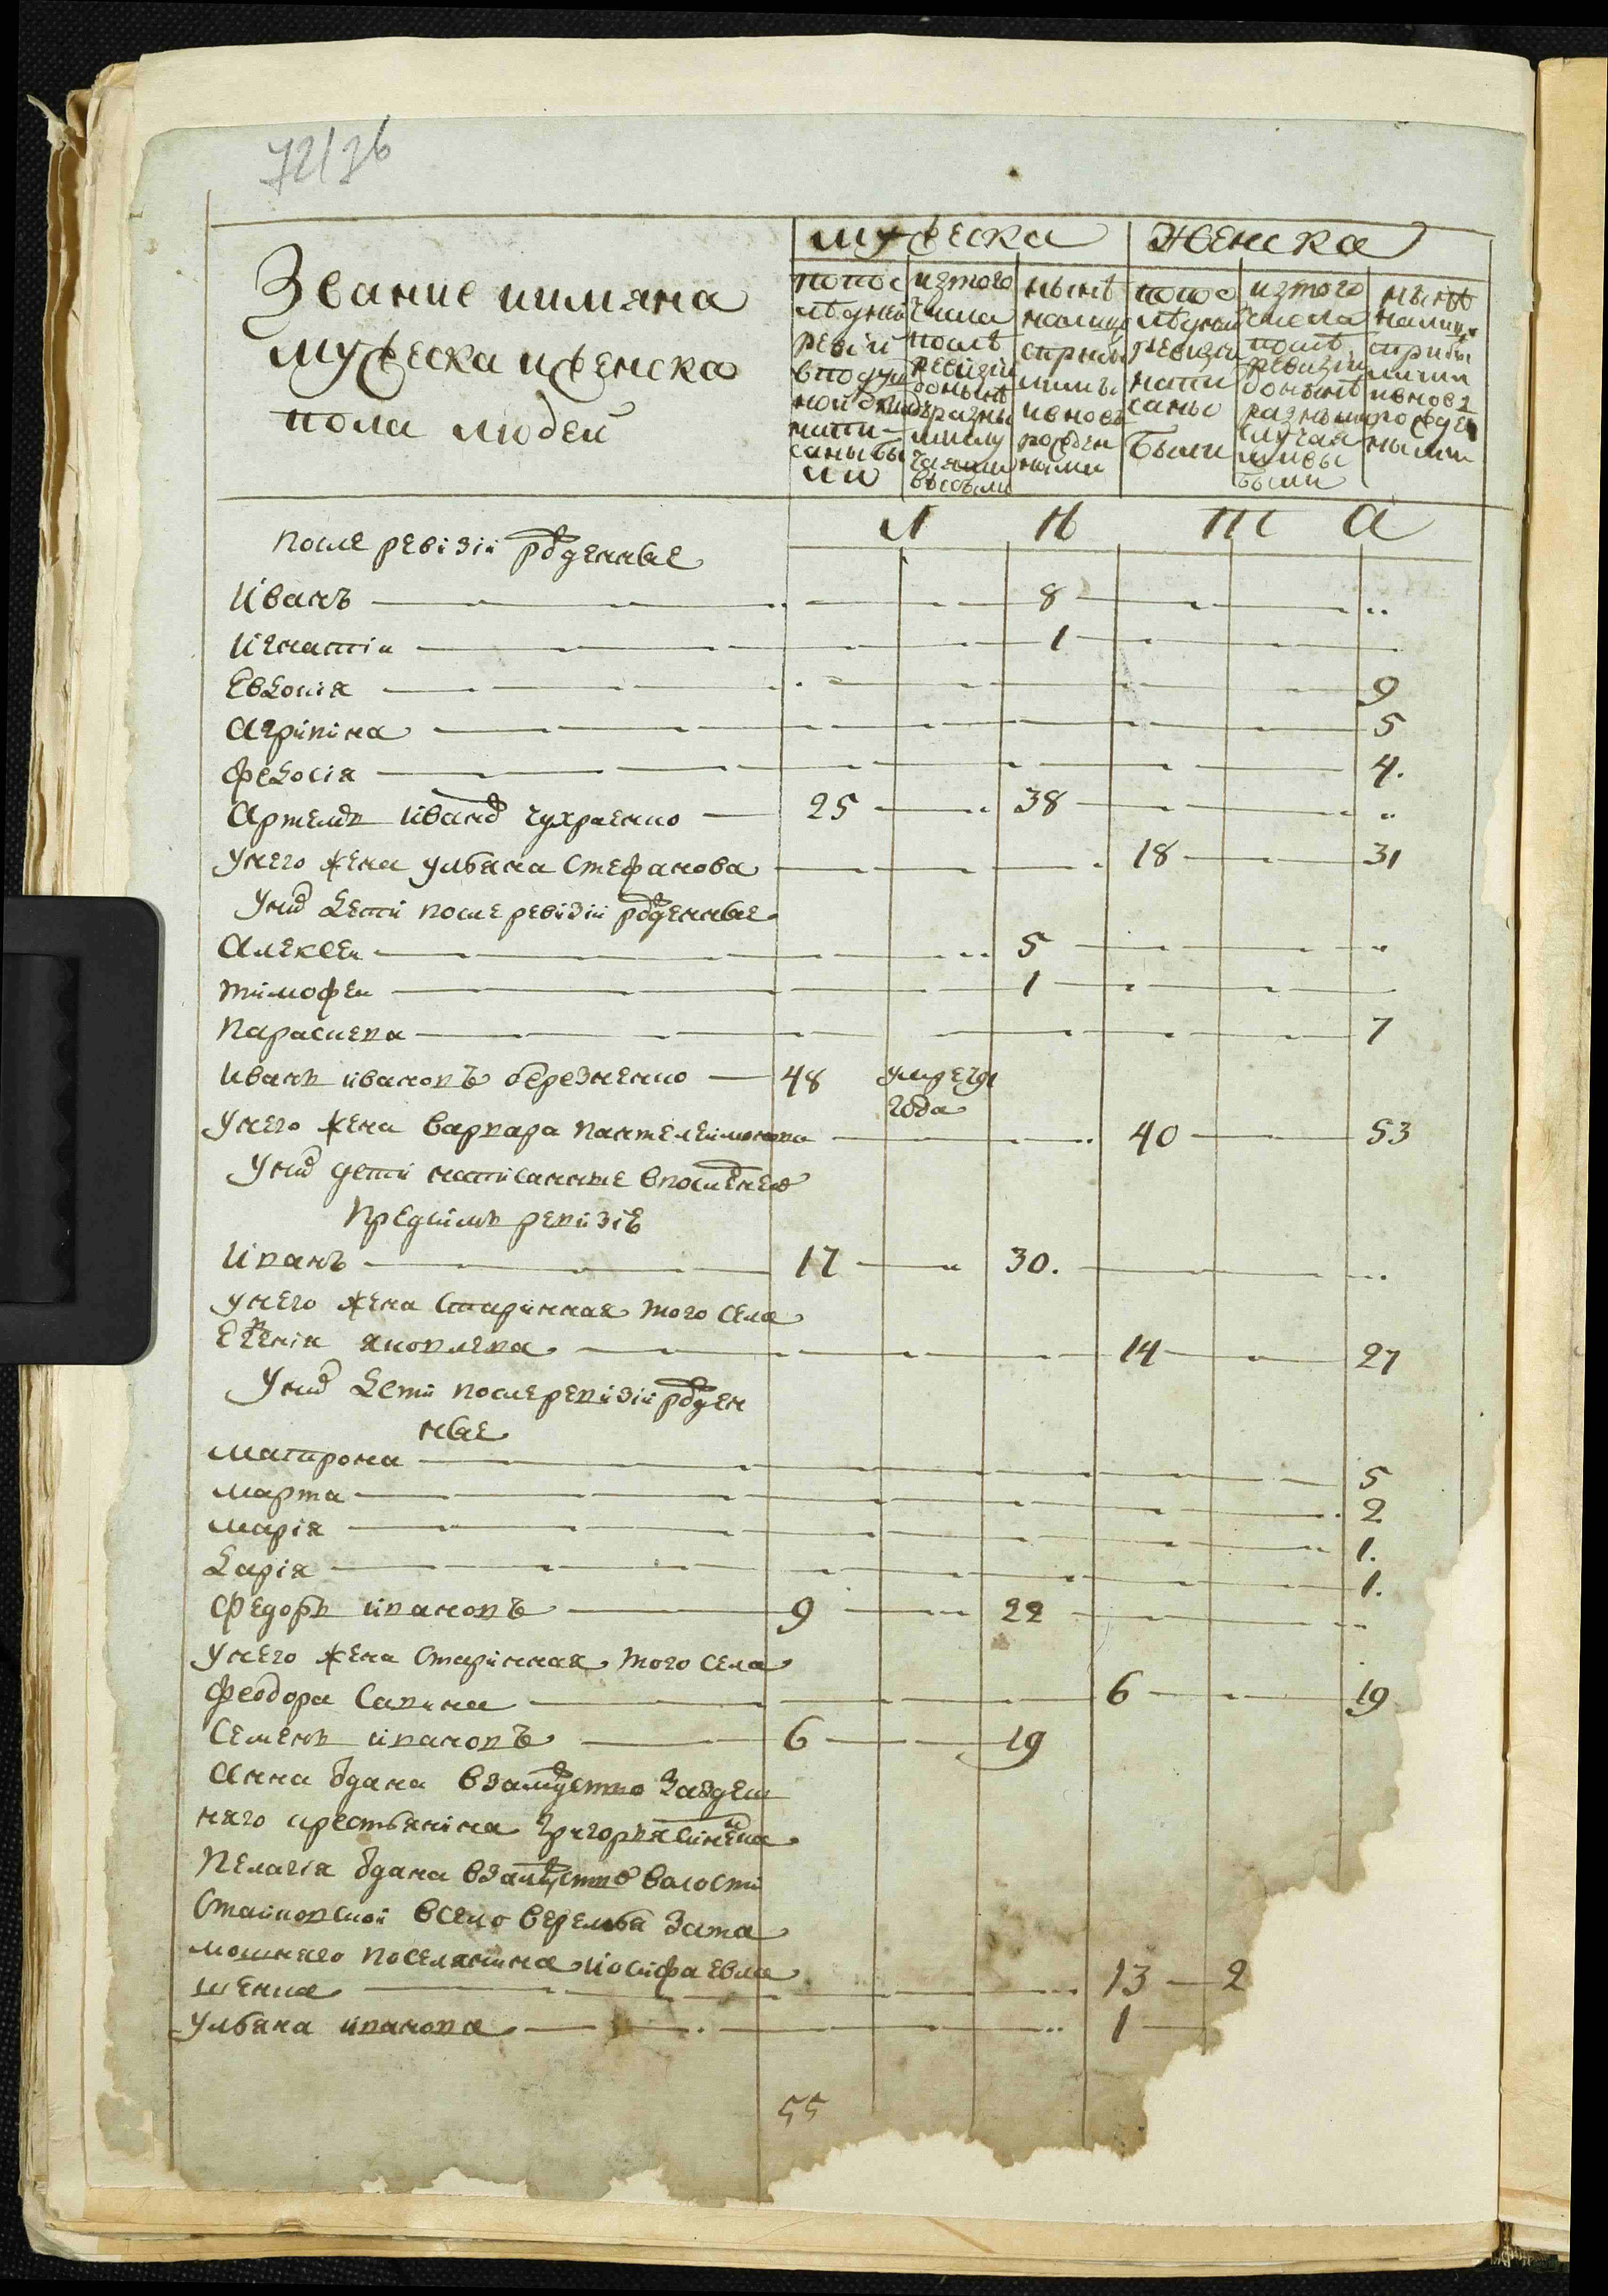 72/36
мужеска женска
Звание иимяна
мужеска иженска
пола людей
попос
лѣдней
ревизіи
вподуш
ной окладъ
напи-
саны бы
ли
изтого
числа
послѣ
ревизіи
донынѣ
разны
ми слу
чаями
выбыли
нынѣ
налицо
сприбы
лыми
ивновь
рожден
ными
попос
лѣдней
ревизіи
напи
саны
были
изтого
числа
послѣ
ревизіи
донынѣ
разными
случая
ми вы
были
нынѣ
налицо
сприбы
лыми
ивновь
рожде
ными
после ревізіи рожденные
Л Ѣ т а
Иванъ 8
Игнатіи 1
Евдокія 9
Агрипіна 5
Федосія 4.
Артемъ Иванов чухраенко 25 38
унего жена улбяна Стефанова 18 31
Уних дети после ревізіи рожденные
Алексеи 5
тимофеи 1
Параскева 7
Иванъ ивановъ березненко 48 умре 791
года
унего жена варвара пантелеимонова 40 53
Уних дети написанные впоследнею
Предсимъ ревізіе
Иванъ 17 30.
унего жена Старинная того села
Евгенія яковлева 14 27
Уних дети после ревизіи рожден
ные
матрона 5
марта 2
марія 1.
дарія 1.
Федоръ ивановъ 9 22
унего жена Старинная того села
Феодора Савина 6 19
Семенъ ивановъ 6 19
Анна одана взамужство Заздеш
няго крестьянина Григорья
Пелагія одана взамужство волости
Стайковской всело веремья Зата
мошняго поселянина иосифа евла
шенка 13 2
улбяна иванова 1
55